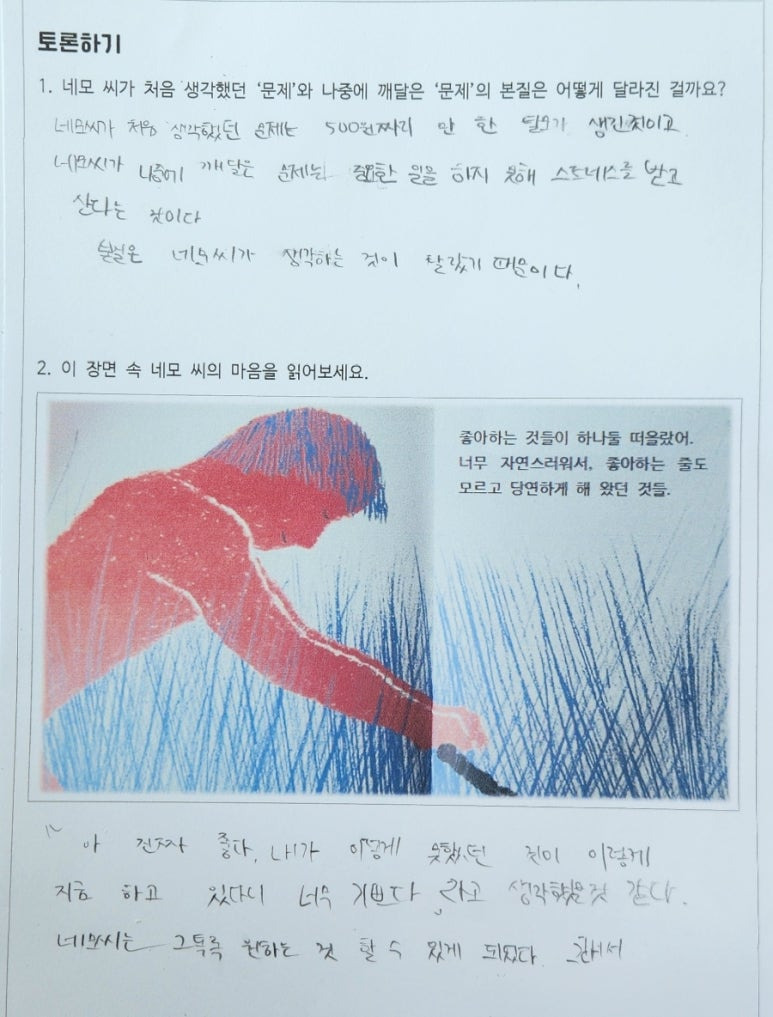 토론하기
1. 네모 씨가 처음 생각했던 '문제'와 나중에 깨달은 '문제'의 본질은 어떻게 달라진 걸까요?
네모씨가 처음 생각했던 문제는 500원짜리 만 한 탈모가 생긴것이고
네모씨가 나중에 깨달은 문제는 필요한 일을 하지 못해 스트레스를 받고
산다는 것이다
본질은 네모씨가 생각하는 것이 달랐기 때문이다.
2. 이 장면 속 네모 씨의 마음을 읽어보세요.
좋아하는 것들이 하나둘 떠올랐어.
너무 자연스러워서, 좋아하는 줄도
모르고 당연하게 해 왔던 것들.
"아 진짜 좋다, 내가 못했던 것이 이렇게
하고 있다니 너무 기쁘다" 라고 생각했을것 같다.
네모씨는 그토록 원하는 것 할 수 있게 되었다. 그래서